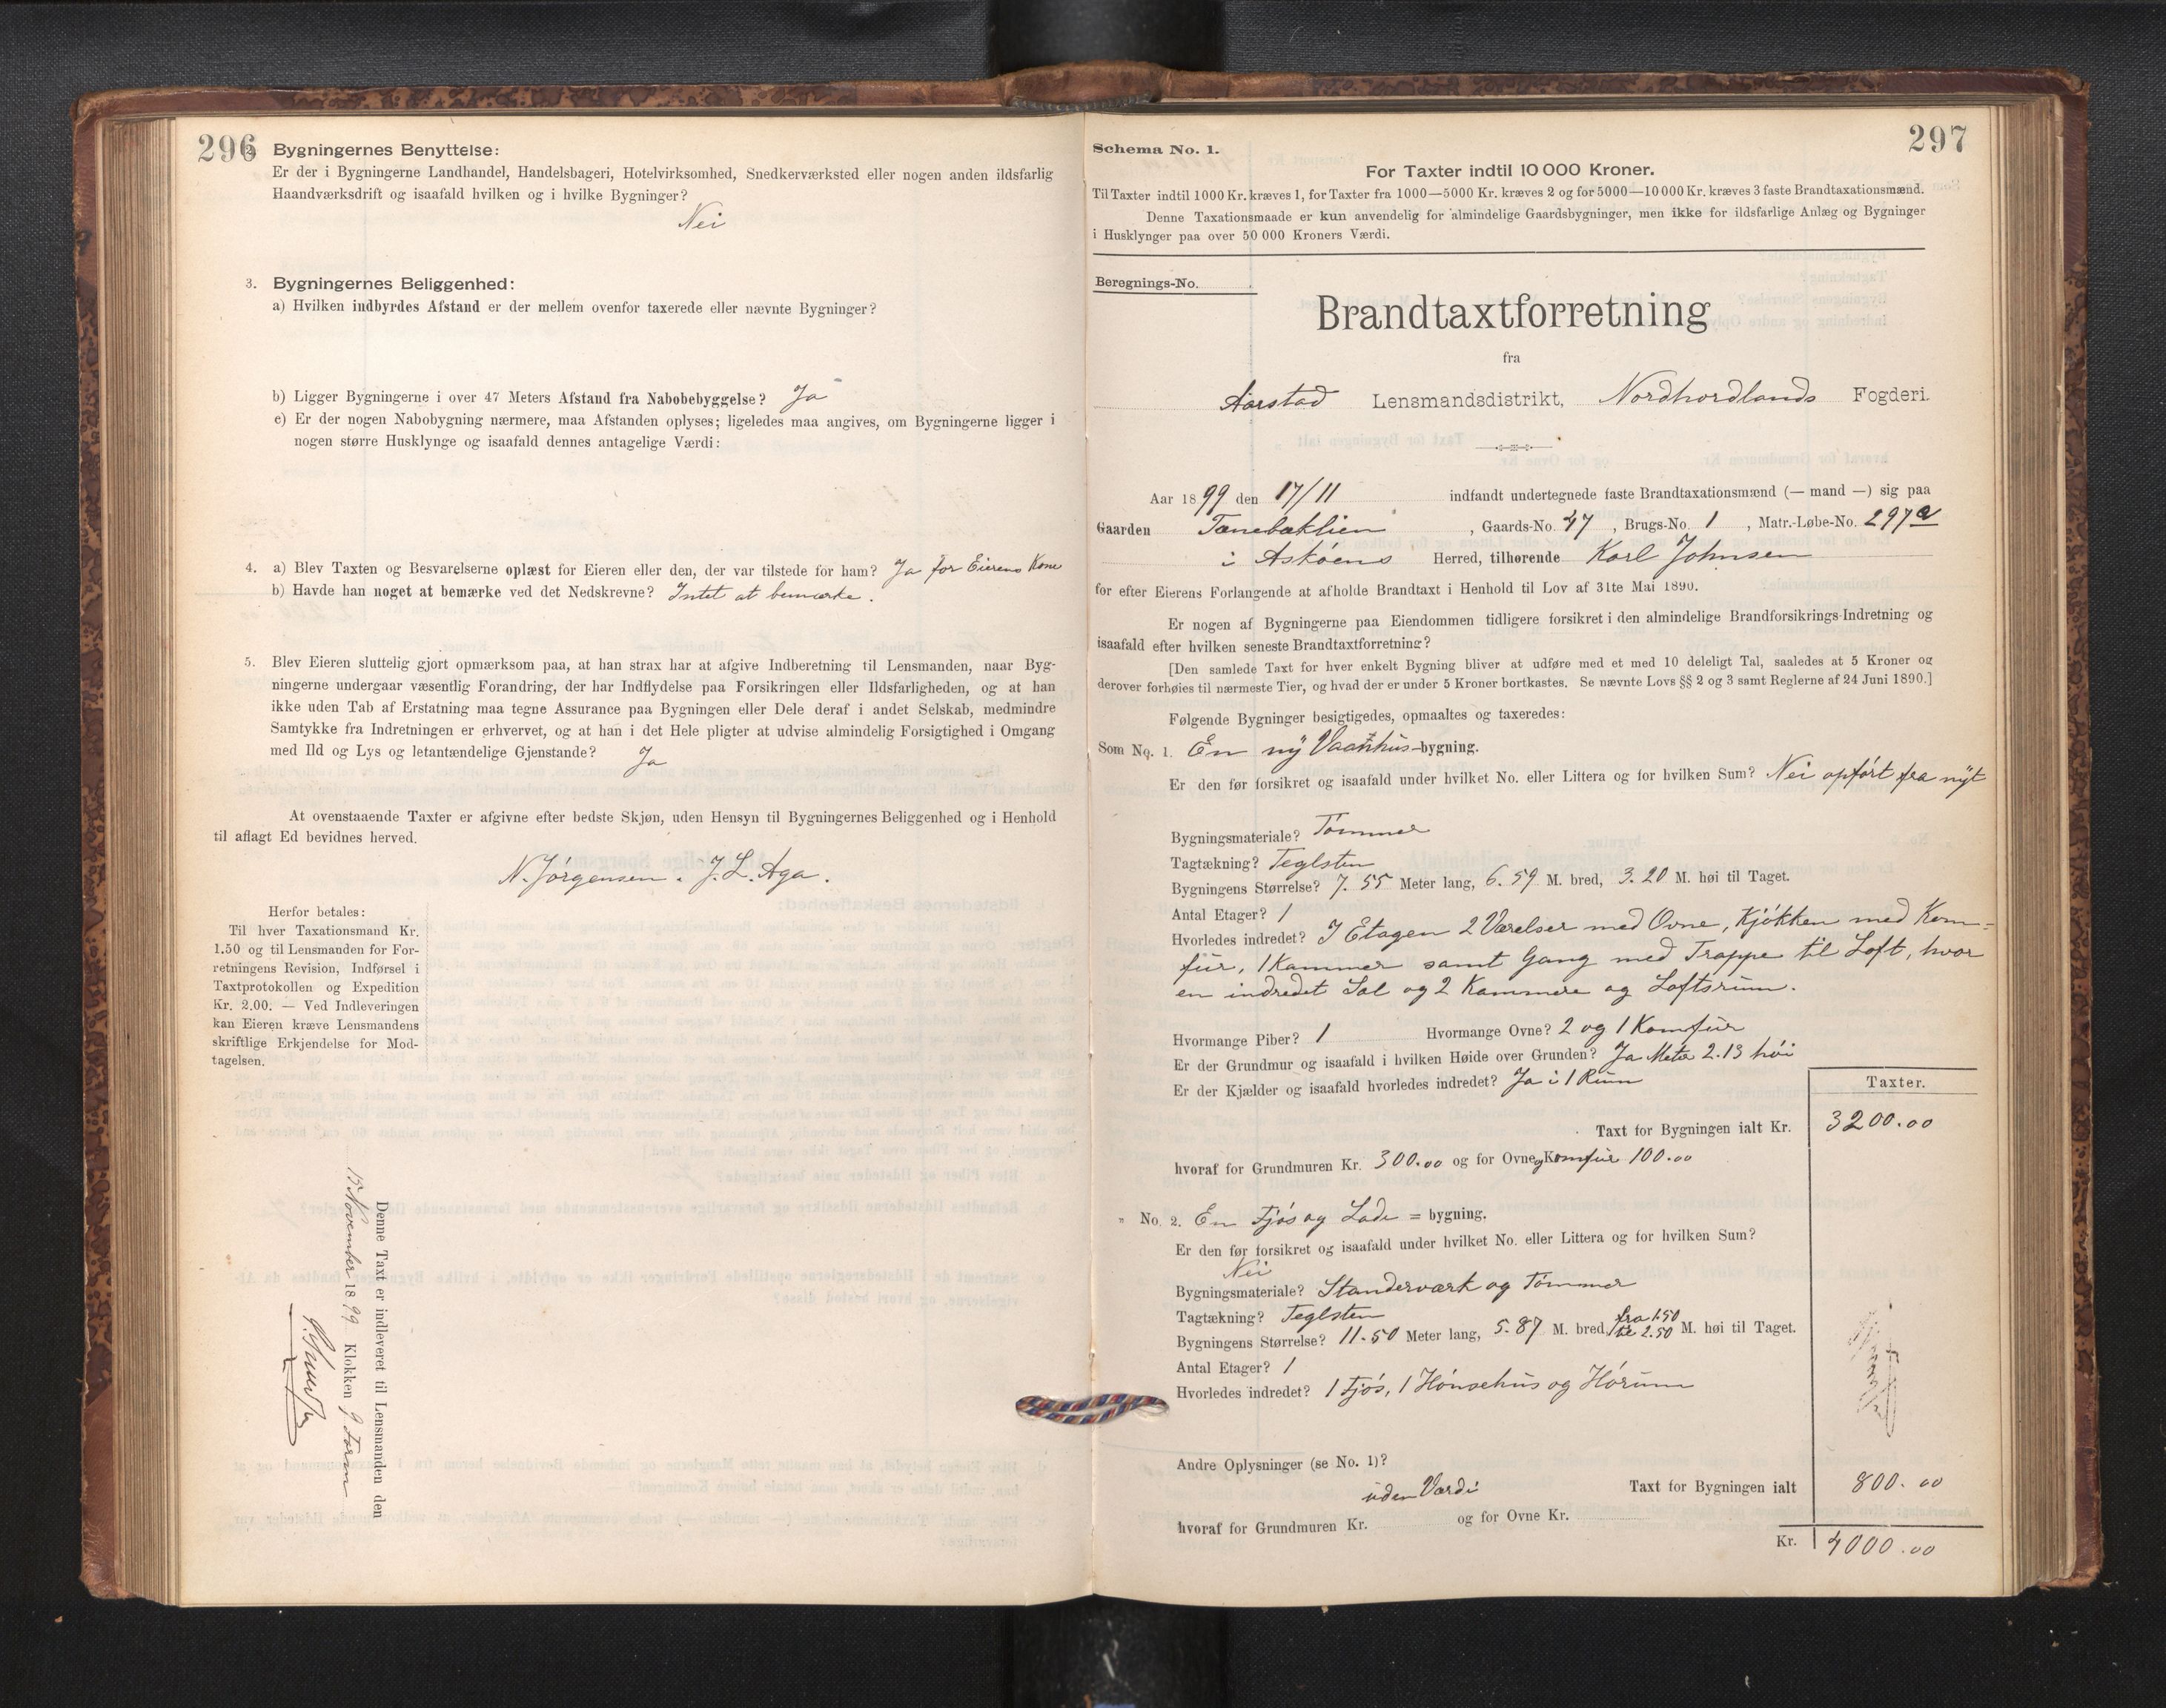 296
2. Bygningernes Benyttelse:
Er der i Bygningerne Landhandel, Handelsbageri, Hotelvirksomhed, Snedkerværksted eller nogen anden ildsfarlig
Haandværksdrift og isaafald hvilken og i hvilke Bygninger?
Nei
3. Bygningernes Beliggenhed:
a) Hvilken indbyrdes Afstand er der mellem ovenfor taxerede eller nævnte Bygninger?
b) Ligger Bygningerne i over 47 Meters Afstand fra Nabobebyggelse? Ja
c) Er der nogen Nabobygning nærmere, maa Afstanden oplyses; ligeledes maa angives, om Bygningerne ligger i
nogen større Husklynge og isaafald dennes antagelige Værdi:
4. a) Blev Taxten og Besvarelserne oplæst for Eieren eller den, der var tilstede for ham? Ja for Eierens Kone
b) Havde han noget at bemærke ved det Nedskrevne? Intet at bemærke.
5. Blev Eieren sluttelig gjort opmærksom paa, at han strax har at afgive Indberetning til Lensmanden, naar Byg-
ningerne undergaar væsentlig Forandring, der har Indflydelse paa Forsikringen eller Ildsfarligheden, og at han
ikke uden Tab af Erstatning maa tegne Assurance paa Bygningen eller Dele deraf i andet Selskab, medmindre
Samtykke fra Indretningen er erhvervet, og at han i det Hele pligter at udvise almindelig Forsigtighed i Omgang
med Ild og Lys og letantændelige Gjenstande? Ja
At ovenstaaende Taxter er afgivne efter bedste Skjøn, uden Hensyn til Bygningernes Beliggenhed og i Henhold
til aflagt Ed bevidnes herved.
N. Jørgensen. J. L. Aga.
Herfor betales:
Til hver Taxationsmand Kr.
1.50 og til Lensmanden for For-
retningens Revision, Indførsel i
Taxtprotokollen og Expedition
Kr. 2.00. — Ved Indleveringen
kan Eieren kræve Lensmandens
skriftlige Erkjendelse for Mod-
tagelsen.
Denne Taxt er indleveret til Lensmanden den
15 November 1899 Klokken 9 Form
297
Schema No. 1.
For Taxter indtil 10 000 Kroner.
Til Taxter indtil 1000 Kr. kræves 1, for Taxter fra 1000—5000 Kr. kræves 2 og for 5000—10 000 Kr. kræves 3 faste Brandtaxationsmænd.
Denne Taxationsmaade er kun anvendelig for almindelige Gaardsbygninger, men ikke for ildsfarlige Anlæg og Bygninger
i Husklynger paa over 50 000 Kroners Værdi.
Beregnings-No.
Brandtaxtforretning
fra
Aarstad Lensmandsdistrikt, Nordhordlands Fogderi.
Aar 1899 den 17/11 indfandt undertegnede faste Brandtaxationsmænd (— mand —) sig paa
Gaarden Tanebaklien, Gaards-No. 47, Brugs-No. 1, Matr.-Løbe-No. 297a
i Askøens Herred, tilhørende Karl Johnsen
for efter Eierens Forlangende at afholde Brandtaxt i Henhold til Lov af 31te Mai 1890.
Er nogen af Bygningerne paa Eiendommen tidligere forsikret i den almindelige Brandforsikrings-Indretning og
isaafald efter hvilken seneste Brandtaxtforretning?
[Den samlede Taxt for hver enkelt Bygning bliver at udføre med et med 10 deleligt Tal, saaledes at 5 Kroner og
derover forhøies til nærmeste Tier, og hvad der er under 5 Kroner bortkastes. Se nævnte Lovs §§ 2 og 3 samt Reglerne af 24 Juni 1890.]
Følgende Bygninger besigtigedes, opmaaltes og taxeredes:
Som No. 1. En ny Vaanhus-bygning.
Er den før forsikret og isaafald under hvilket No. eller Littera og for hvilken Sum? Nei opført fra nyt
Bygningsmateriale? Tømmer
Tagtækning? Teglsten
Bygningens Størrelse? 7.55 Meter lang, 6.59 M. bred, 3.20 M. høi til Taget.
Antal Etager? 1
Hvorledes indredet? I Etagen 2 Værelser med Ovne, Kjøkken med Kom=
fur, 1 Kammer samt Gang med Trappe til Loft, hvor
en indredet Sal og 2 Kammere og Loftsrum.
Hvormange Piber? 1 Hvormange Ovne? 2 og 1 Komfur
Er der Grundmur og isaafald i hvilken Høide over Grunden? Ja Meter 2.13 høi
Er der Kjælder og isaafald hvorledes indredet? Ja i 1 Rum
Taxter.
Taxt for Bygningen ialt Kr. 3200.00
hvoraf for Grundmuren Kr. 300.00 og for Ovne og Komfur 100.00
" No. 2. En Fjøs og Lade = bygning.
Er den før forsikret og isaafald under hvilket No. eller Littera og for hvilken Sum?
Nei
Bygningsmateriale? Standerværk og Tømmer
Tagtækning? Teglsten
Bygningens Størrelse? 11.50 Meter lang, 5.87 M. bred, fra 1.50 til 2.50 M. høi til Taget.
Antal Etager? 1
Hvorledes indredet? 1 Fjøs, 1 Hønsehus og Hørum
Andre Oplysninger (se No. 1)?
uden Værdi
Taxt for Bygningen ialt 800.00
hvoraf for Grundmuren Kr. og for Ovne Kr.
Kr. 4000.00